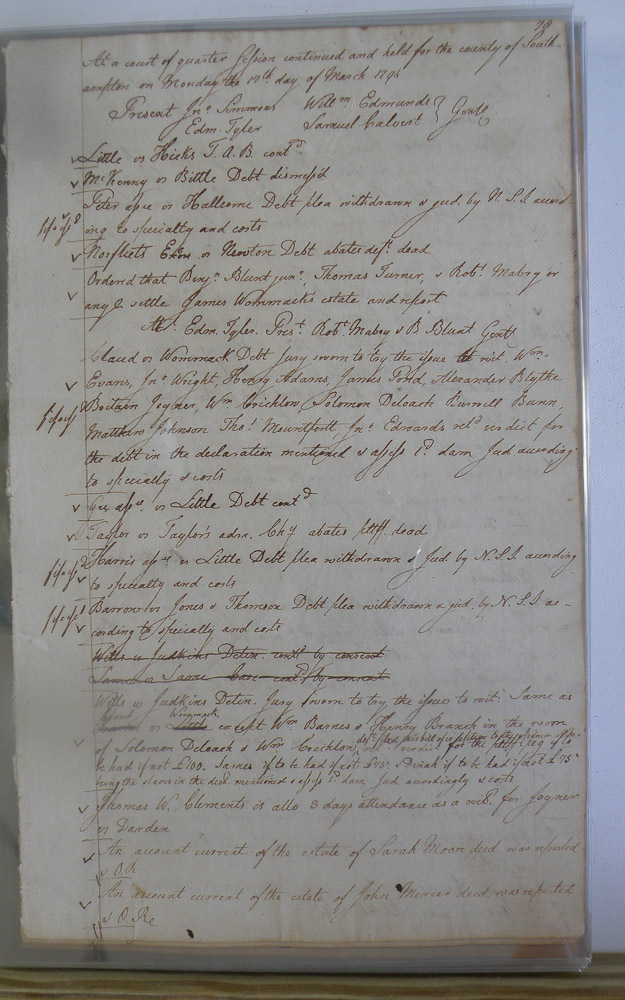 98
At a court of quarter session continued and held for the county of South-
ampton on Monday the 17th day of March 1794
Present Jno Simmons Willm Edmunds } Gents
Edm. Tyler Samuel Calvert
Little vs Hicks T. A. B. contd
McKenny vs Bittle Debt dismiss'd
Peter assee vs Hallcome Debt plea withdrawn & jud. by N. S. I accord
ing to specialty and costs
Norfleets Exor vs Newton Debt abates deft dead
Ordered that Benjn Blunt junr, Thomas Turner, & Robt Mabry or
any 2 settle James Wommack's estate and report
Abt Edm. Tyler. Prest Robt Mabry & B Blunt Gents
Claud vs Wommack Debt Jury sworn to try the issue to wit. Wm
Evans, Jno Wright, Henry Adams, James Pond, Alexander Blythe
Britain Joyner, Wm Crichlow, Solomon Deloach Burrell Bunn,
Matthew Johnson Thos Mountfort Jno Edwards retd verdict for
the debt in the declaration mentioned & assess 1d dam Jud according
to specialty & costs
assee vs Little Debt contd
Taylor vs Taylor's adm. Chy abates pltff. dead
Harris assee vs Little Debt plea withdrawn & Jud. by N. S. I. according
to specialty and costs
Barrow vs Jones & Thomson Debt plea withdrawn & jud. by N. S. I. ac-
cording to specialty and costs
Wills vs Judkins Detin. contd by consent
Same vs Same Case contd by consent
Wills vs Judkins Detin. Jury sworn to try the issue to wit. Same as
Claud Wommack
vs Little except Wm Barnes & Henry Branch in the room
of Solomon Deloach & Wm Crichlow, verdict for the pltff
be had if not £100. James if to be had if not £75, & Dinah if to be had if not £75
being the slaves in the decl mentioned & assess 1d dam Jud accordingly & costs
Thomas W. Clements is allo 3 days attendance as a wit. for Joyner
vs Darden
An account current of the estate of Sarah Moore deed was reported
& O. R
An account current of the estate of John Mercer deed was reported
& O. Re